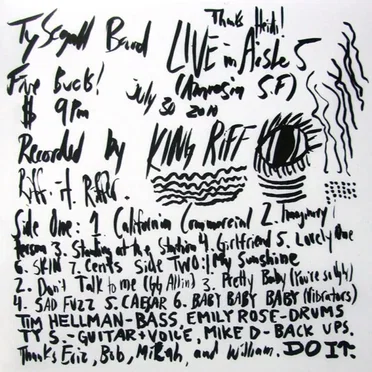 Thanks Heidi!
Ty Segall Band LIVE in Aisle 5
Five Buck! (Amnesia S.F)
$ 9Pm July 30 2010
Recorded by KING RIFF
Riff. H.
Side One: 1. California Commercial 2. Imaginary
Person 3. Standing at the Station 4. Girlfriend 5. Lovely One
6. SKIN 7. Cents Side Two: 1 My Sunshine
2. Don't Talk to me (GG Allin) 3. Pretty Baby (You're so Ugly)
4. SAD FUZZ 5. CAESAR 6. BABY BABY BABY (Vibrators)
TIM HELLMAN-BASS, EMILY ROSE-DRUMS
TY S.-GUITAR+VOICE, MIKE D-BACK UPS.
Thanks Eric, Bob, Mikah, and William. DO IT.